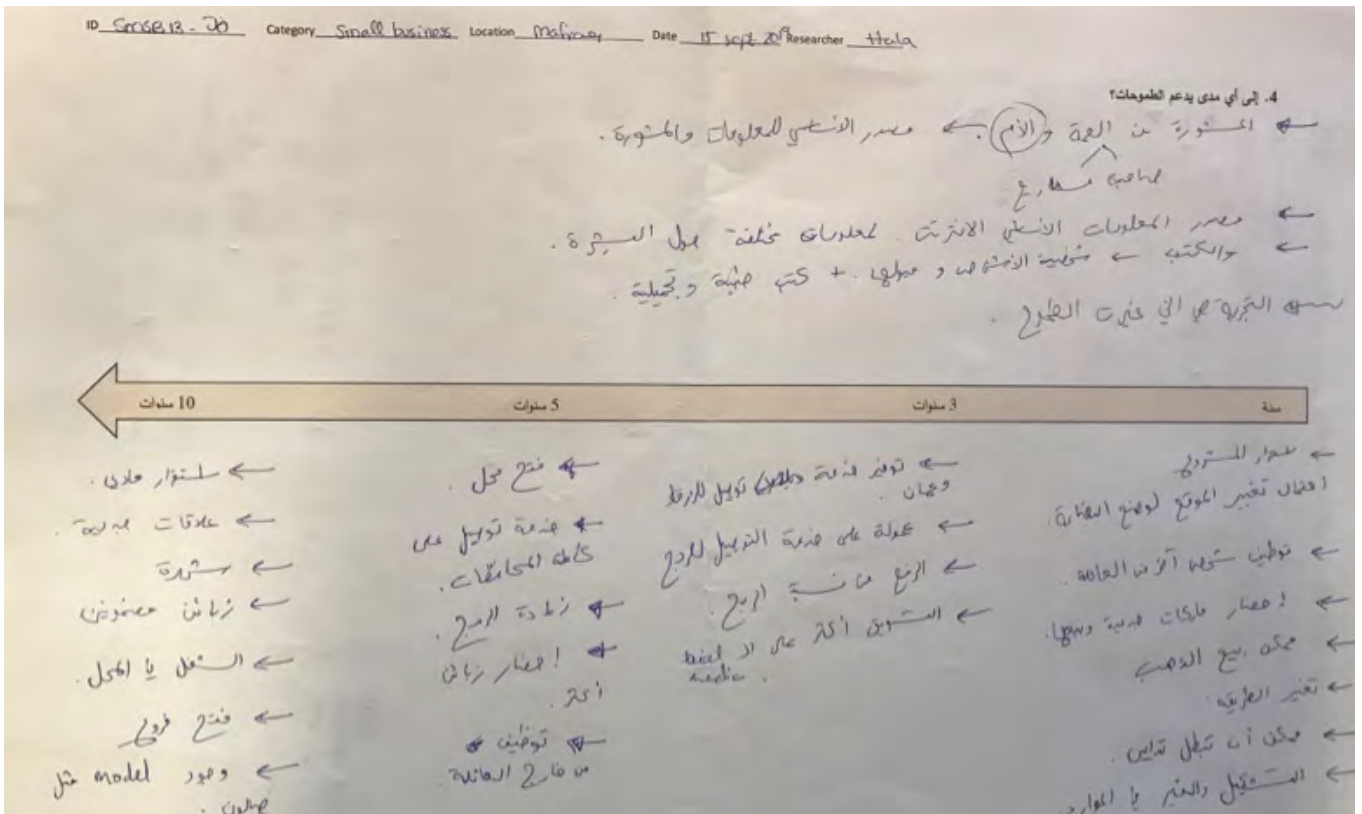 ID Category Small business Location Date 15 sept 2019 Researcher Hala
4. إلى أي مدى يدعم الطموحات؟
← المشورة من العمة و الأم ← مصدر الأساسي للمعلومات والمشورة.
صاحبة مشاريع
← مصدر المعلومات الأساسي الانترنت. لمعلومات مختلفة حول البشرة.
← والكتب ← شخصية الأشخاص و ميولها. + كتب طبية و تجميلية.
← التجربة هي الي غيرت الطموح.
سنة
3 سنوات
5 سنوات
10 سنوات
← استمرار المشروع
احتمال تغيير الموقع لوضع البضاعة.
← توظيف شخص آخر من العائلة.
← إحضار ماركات جديدة وبيعها.
← ممكن بيع الذهب
← تغيير الطريقة.
← ممكن أن تبطل تداين.
← والتغير يا
← توفير خدمة توصيل للزرقا
وعمان.
← عمولة على خدمة التوصيل للربح
← الرفع من نسبة الربح.
← التسويق أكثر على ال
media.
← فتح محل.
← خدمة توصيل على
كافة المحافظات.
← زيادة الربح.
← إحضار زبائن
أكثر.
← توظيف
من خارج العائلة.
← استقرار مادي.
← علاقات جديدة.
← شهرة
← زبائن مضمونين
← الشغل يا المحل.
← فتح فروع
← وجود model مثل
صالون.